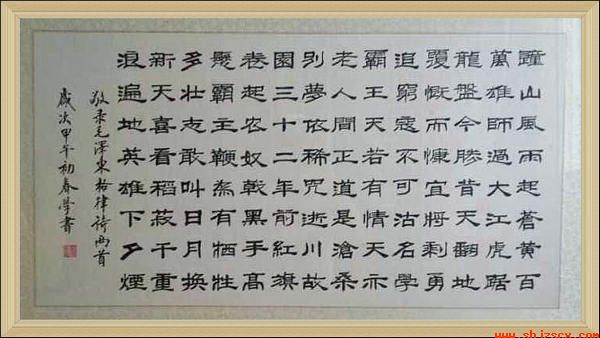 鍾山風雨起蒼黄百
萬雄師過大江虎踞
龍盤今勝昔天翻地
覆慨而慷宜將剩勇
追窮寇不可沽名學
霸王天若有情天亦
老人間正道是滄桑
别夢依稀咒逝川故
園三十二年前紅旗
卷起农奴戟黑手髙
懸霸主鞭為有牺牲
多壮志敢叫日月换
新天喜看稻菽千重
浪遍地英雄下夕煙
敬录毛澤東格律诗两首
歲次甲午初春學書